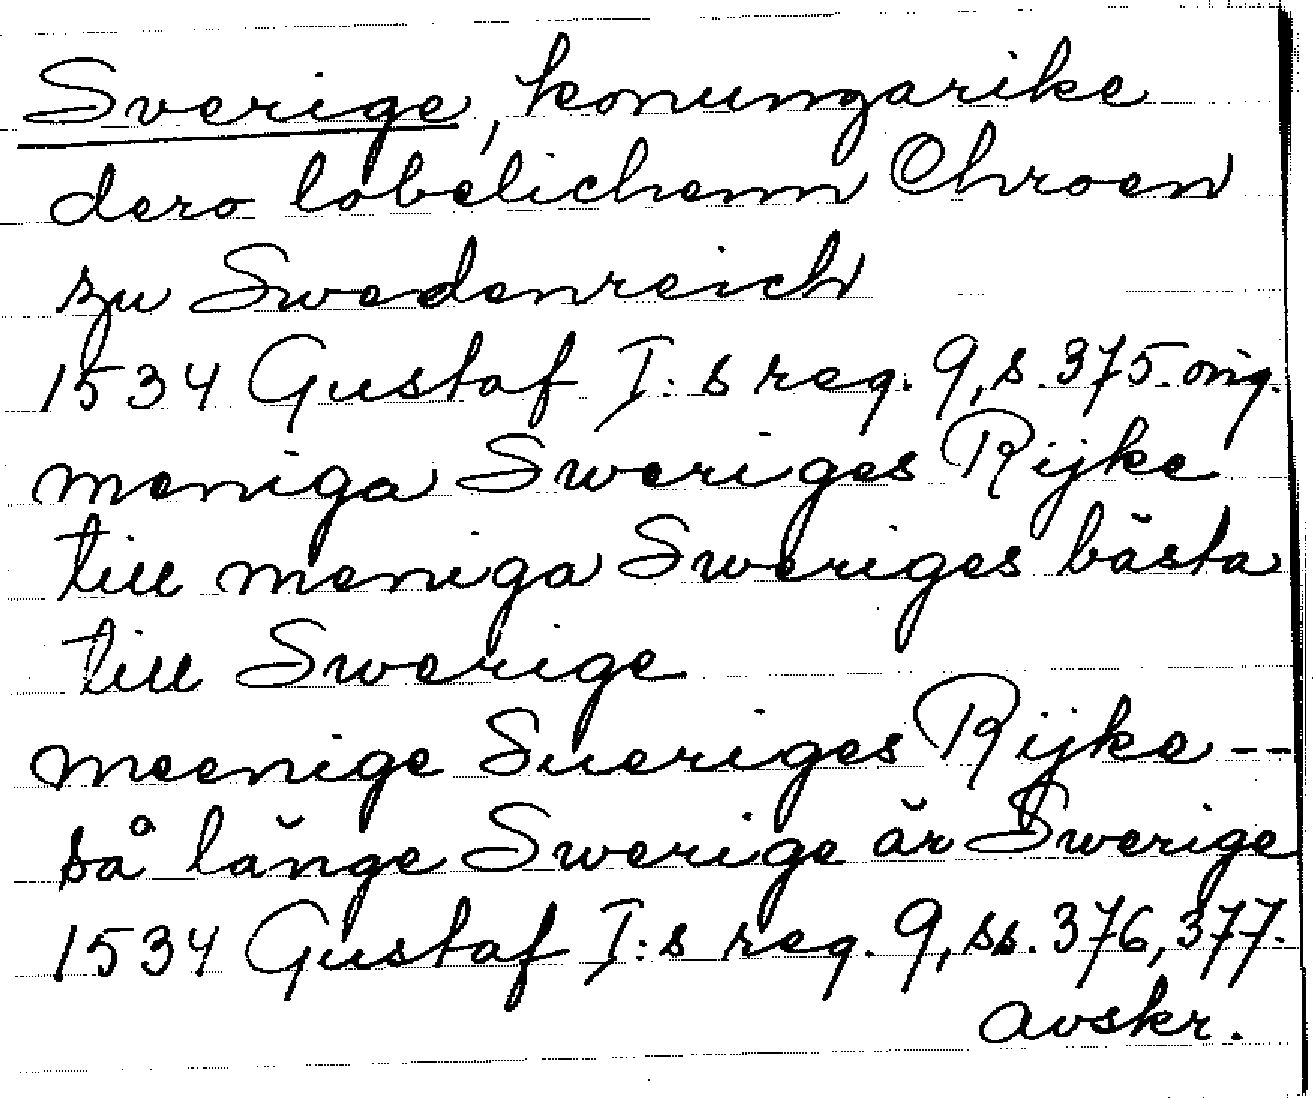 Sverige, konungarike
dero lobelichenn Chroen
zu Swedenreich
1534 Gustaf I:s reg. 9, s. 375. orig.
meniga Sweriges Rijke
till meniga Sweriges bästa
till Swerige
meenige Sueriges Rijke --
så länge Swerige är Swerige
1534 Gustaf I:s reg. 9, ss. 376, 377.
avskr.